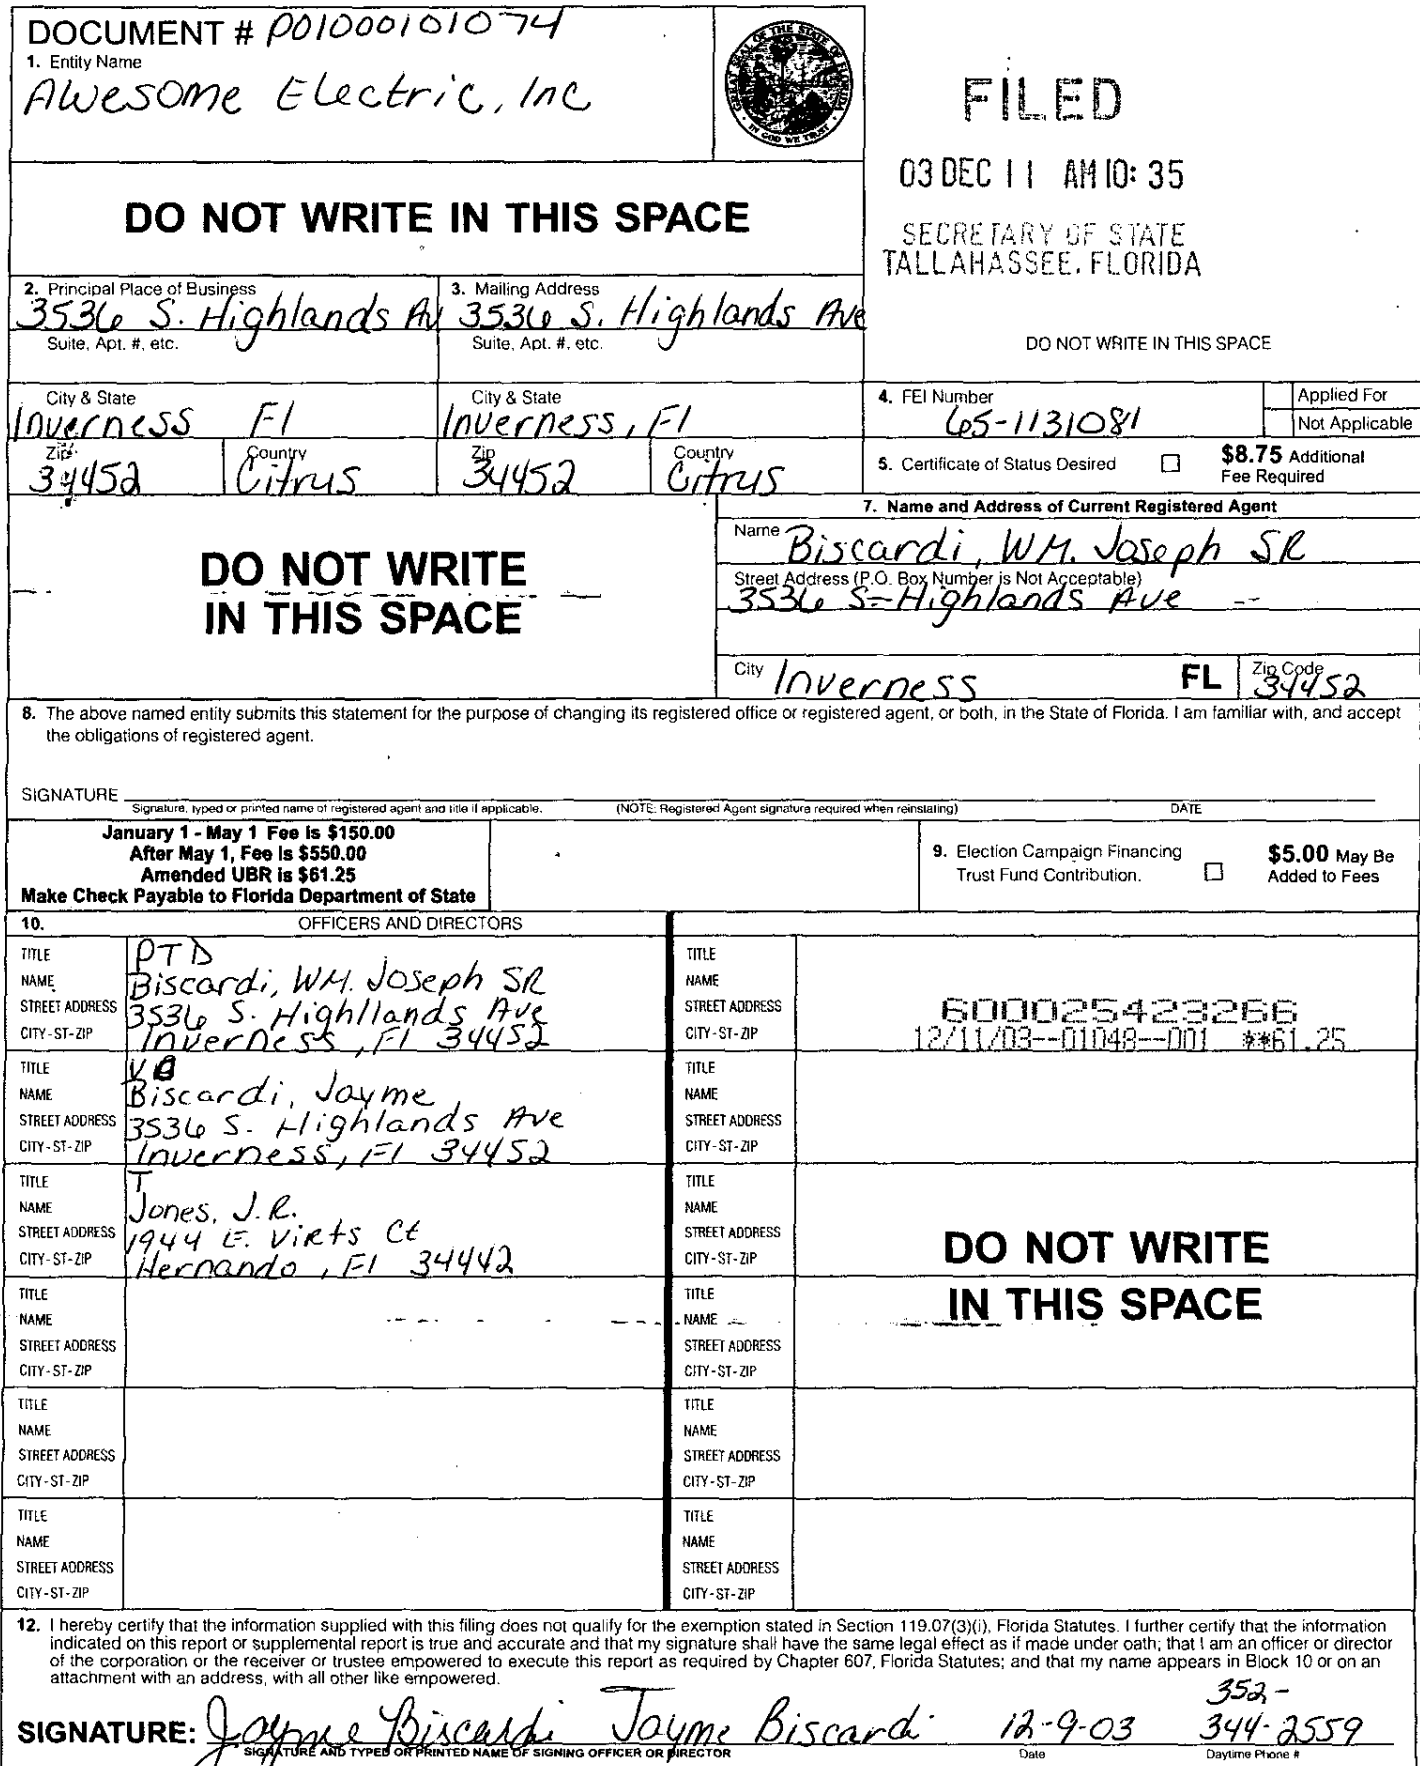 DOCUMENT # P01000101074
1. Entity Name
Awesome Electric, Inc
GREAT SEAL OF THE STATE OF FLORIDA
IN GOD WE TRUST
FILED
03 DEC 11 AM 10:35
SECRETARY OF STATE
TALLAHASSEE, FLORIDA
DO NOT WRITE IN THIS SPACE
2. Principal Place of Business
3536 S. Highlands Av
Suite, Apt. #, etc.
3. Mailing Address
3536 S. Highlands Ave
Suite, Apt. #, etc.
DO NOT WRITE IN THIS SPACE
City & State
Inverness Fl
City & State
Inverness, Fl
4. FEI Number
65-1131081
Applied For
Not Applicable
Zip
34452
Country
Citrus
Zip
34452
Country
Citrus
5. Certificate of Status Desired
$8.75 Additional
Fee Required
DO NOT WRITE
IN THIS SPACE
7. Name and Address of Current Registered Agent
Name Biscardi, WM. Joseph SR
Street Address (P.O. Box Number is Not Acceptable)
3536 S. Highlands Ave
City Inverness FL Zip Code 34452
8. The above named entity submits this statement for the purpose of changing its registered office or registered agent, or both, in the State of Florida. I am familiar with, and accept
the obligations of registered agent.
SIGNATURE
Signature, typed or printed name of registered agent and title if applicable. (NOTE: Registered Agent signature required when reinstating) DATE
January 1 - May 1 Fee is $150.00
After May 1, Fee is $550.00
Amended UBR is $61.25
Make Check Payable to Florida Department of State
9. Election Campaign Financing
Trust Fund Contribution.
$5.00 May Be
Added to Fees
10. OFFICERS AND DIRECTORS
TITLE PTD
NAME Biscardi, WM. Joseph SR
STREET ADDRESS 3536 S. Highllands Ave
CITY-ST-ZIP Inverness, Fl 34452
TITLE
NAME
STREET ADDRESS
CITY-ST-ZIP
600025423266
12/11/03--01048--001 **61.25
TITLE V
NAME Biscardi, Jayme
STREET ADDRESS 3536 S. Highlands Ave
CITY-ST-ZIP Inverness, Fl 34452
TITLE
NAME
STREET ADDRESS
CITY-ST-ZIP
TITLE T
NAME Jones, J.R.
STREET ADDRESS 1944 E. Virts Ct
CITY-ST-ZIP Hernando, Fl 34442
TITLE
NAME
STREET ADDRESS
CITY-ST-ZIP
DO NOT WRITE
IN THIS SPACE
TITLE
NAME
STREET ADDRESS
CITY-ST-ZIP
TITLE
NAME
STREET ADDRESS
CITY-ST-ZIP
TITLE
NAME
STREET ADDRESS
CITY-ST-ZIP
TITLE
NAME
STREET ADDRESS
CITY-ST-ZIP
TITLE
NAME
STREET ADDRESS
CITY-ST-ZIP
TITLE
NAME
STREET ADDRESS
CITY-ST-ZIP
12. I hereby certify that the information supplied with this filing does not qualify for the exemption stated in Section 119.07(3)(i), Florida Statutes. I further certify that the information
indicated on this report or supplemental report is true and accurate and that my signature shall have the same legal effect as if made under oath; that I am an officer or director
of the corporation or the receiver or trustee empowered to execute this report as required by Chapter 607, Florida Statutes; and that my name appears in Block 10 or on an
attachment with an address, with all other like empowered.
SIGNATURE: Jayme Biscardi Jayme Biscardi 12-9-03 352-
344-2559
SIGNATURE AND TYPED OR PRINTED NAME OF SIGNING OFFICER OR DIRECTOR Date Daytime Phone #